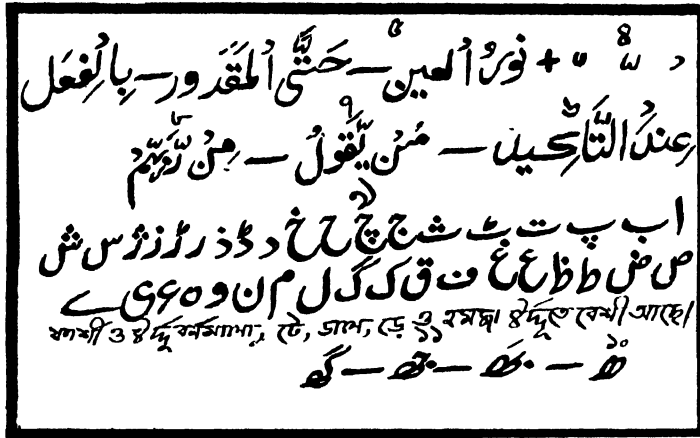 نُورُ الْعين — حَتَّى الْمَقْدُور — بِالْفِعْل
عِندَ التَّاكِيد — مَنْ يَّقُولُ — مِنْ رَّبِّهِمْ
ا ب پ ت ٹ ث ج چ ح خ د ڈ ذ ر ڑ ز ژ س ش
ص ض ط ظ ع غ ف ق ک گ ل م ن و ہ ء ی ے
ফার্শী ও উর্দ্দু বর্নমালা, টে, ডাল, ড়ে ও হামজা উর্দ্দূতে বেশী আছে।